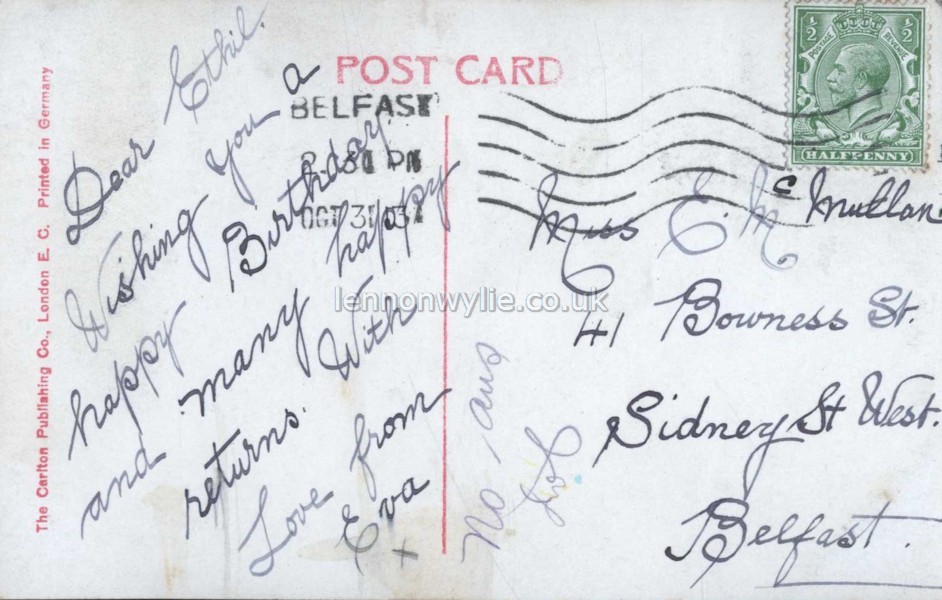 POST CARD
The Carlton Publishing Co., London E. C. Printed in Germany
BELFAST
PM
OCT 31
1/2 1/2
POSTAGE REVENUE
HALFPENNY
Dear Ethil.
Wishing you a
happy Birthday
and many happy
returns. With
Love from
Eva
+
No ans
Miss E. Mc Mullan
41 Bowness St.
Sidney St West.
Belfast.
lennonwylie.co.uk